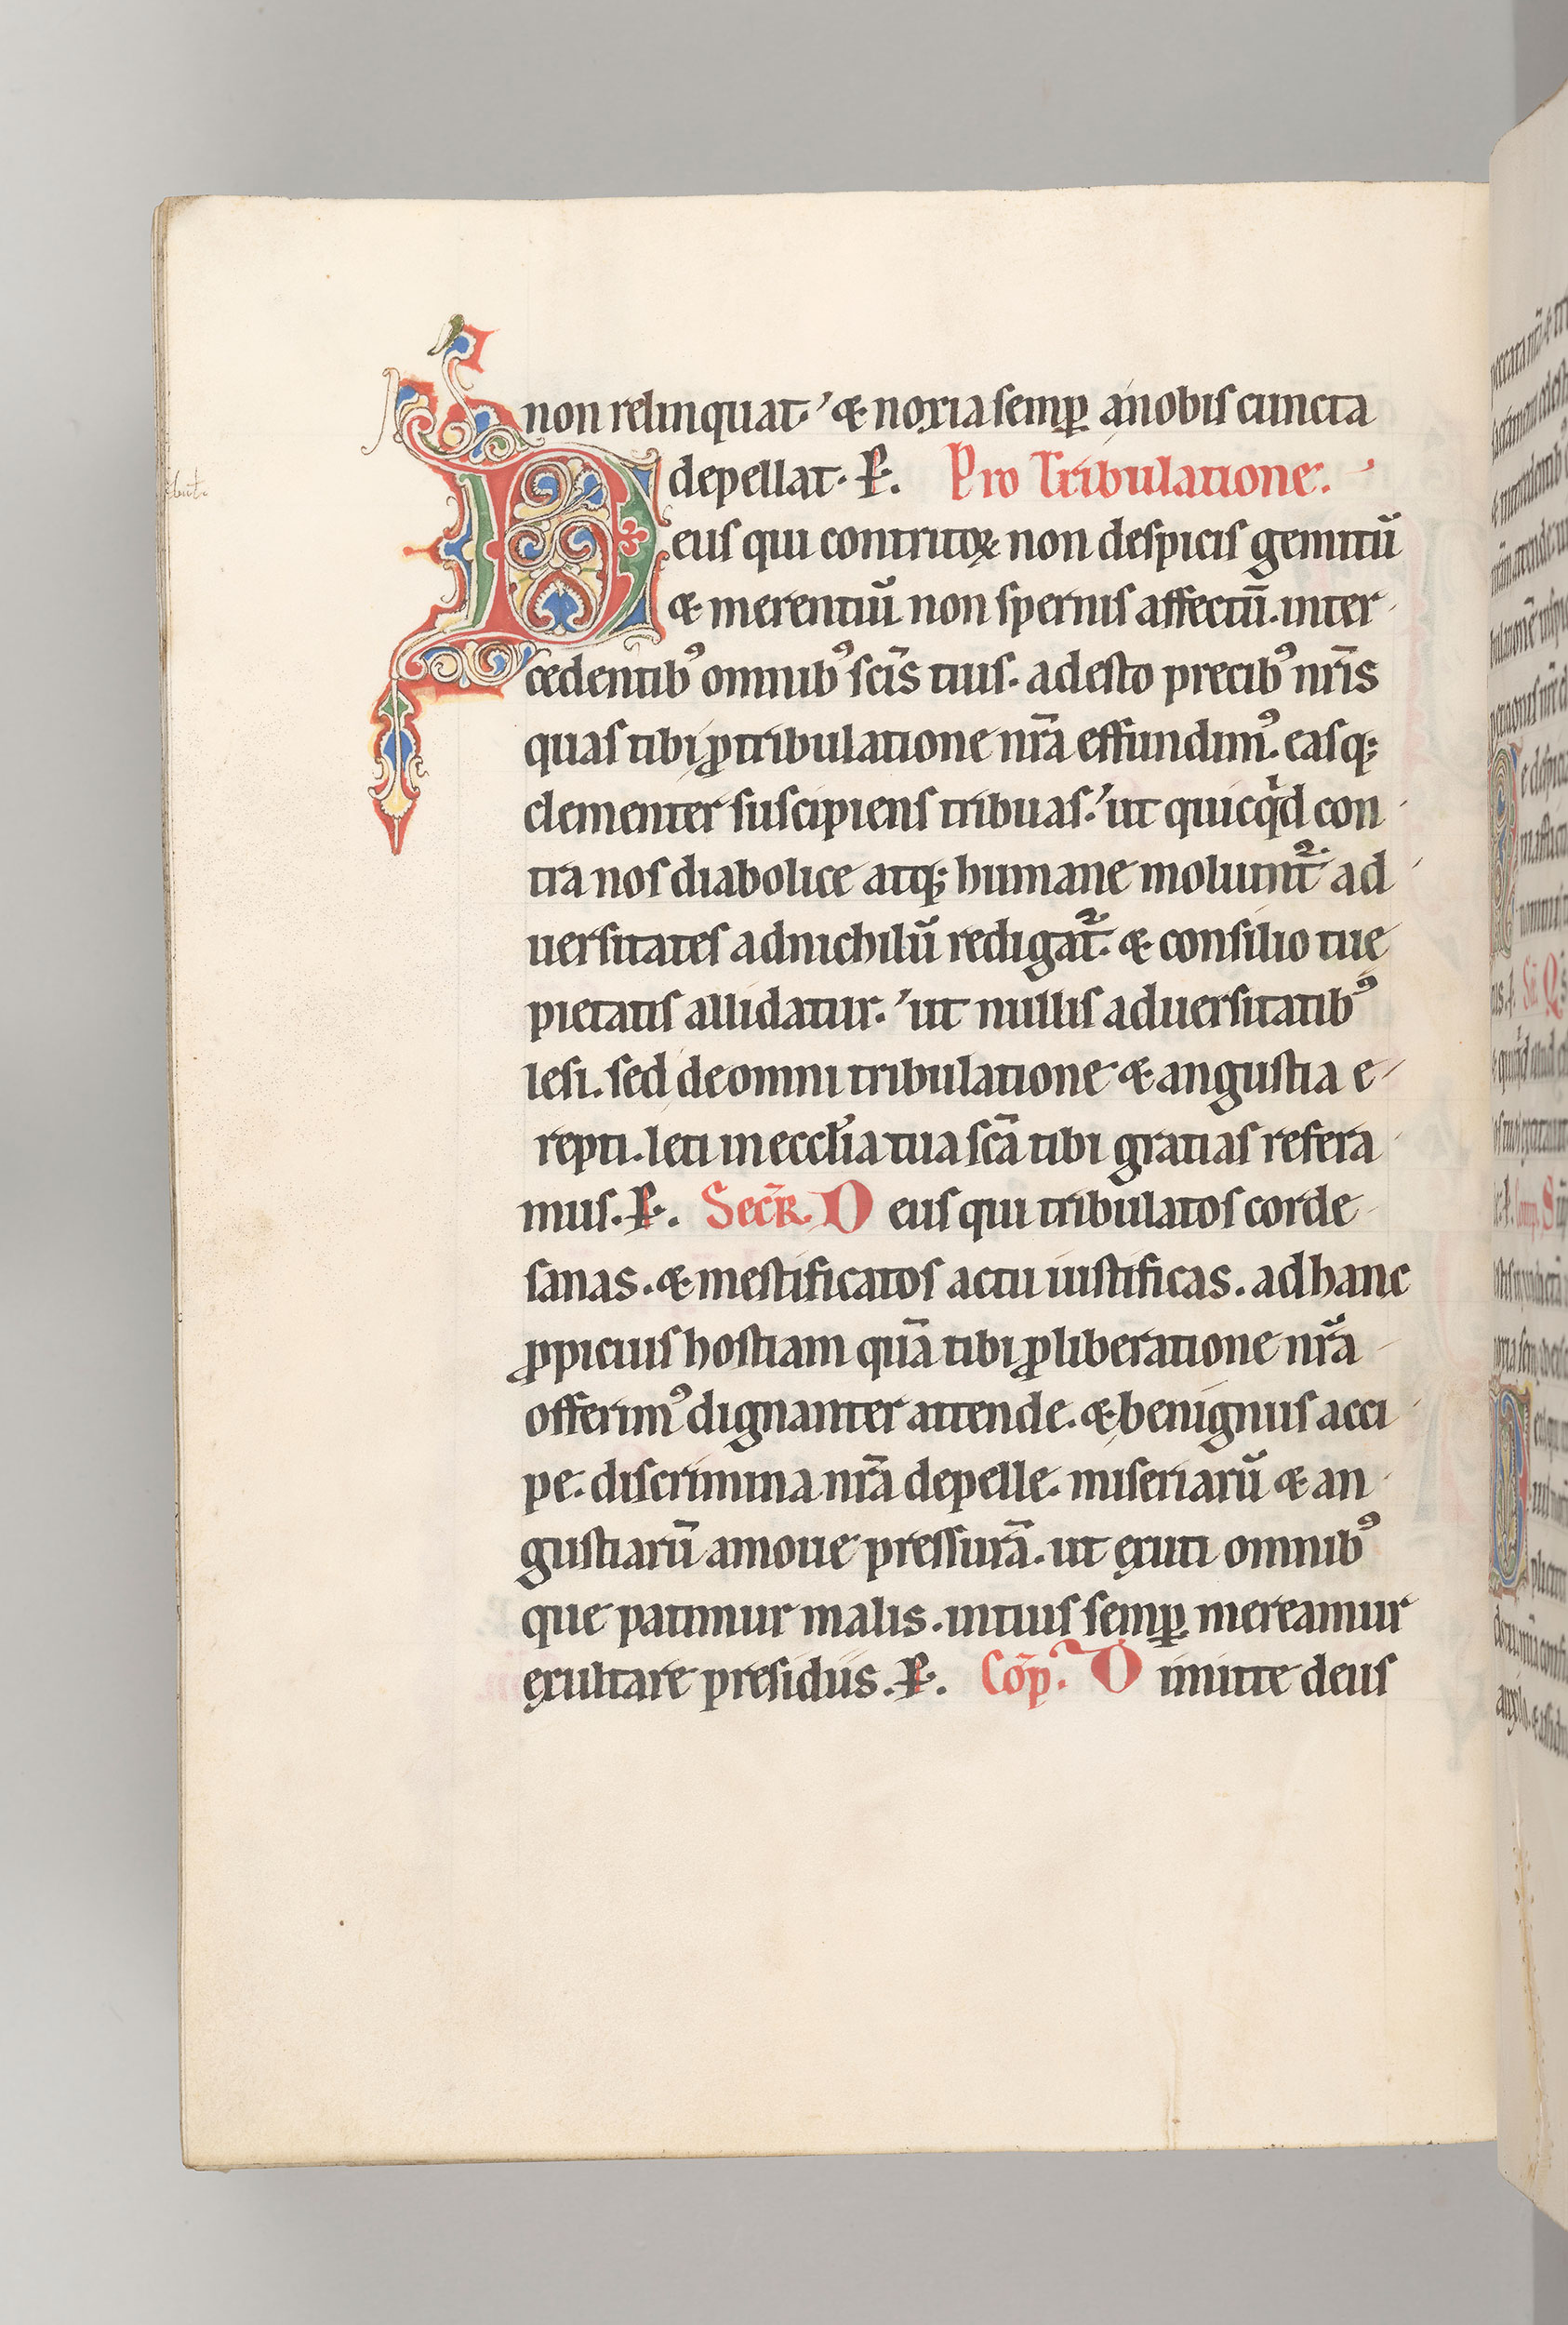 non relinquat. & noxia semꝑ a nobis cuncta
depellat. P. Pro Tribulatione.
Deus qui contritoꝝ non despicis gemitū
& merentiū non spernis affectū. inter
cedentibꝰ omnibꝰ scīs tuis. adesto precibꝰ nrīs
quas tibi ꝓ tribulatione nrā effundimꝰ. easq;
clementer suscipiens tribuas. ut quicqͥd con
tra nos diabolice atq; humane moliunt᷑ ad
uersitates ad nichilū redigat᷑. & consilio tue
pietatis allidatur. ut nullis aduersitatibꝰ
lesi. sed de omni tribulatione & angustia e
repti. leti in eccl̄ia tua scā tibi gratias refera
mus. P. Secr̄. Deus qui tribulatos corde
sanas. & mestificatos actu iustificas. ad hanc
ꝓpicius hostiam quā tibi ꝓ liberatione nrā
offerimꝰ dignanter attende. & benignus acci
pe. discrimina nrā depelle. miseriarū & an
gustiarū amoue pressurā. ut exuti omnibꝰ
que patimur malis. intuis semꝑ mereamur
exultare presidiis. P. Cōp. Dimitte deus